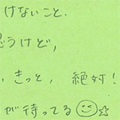 けないこと.
思うけど,
, きっと, 絶対!
が待ってる☺☆